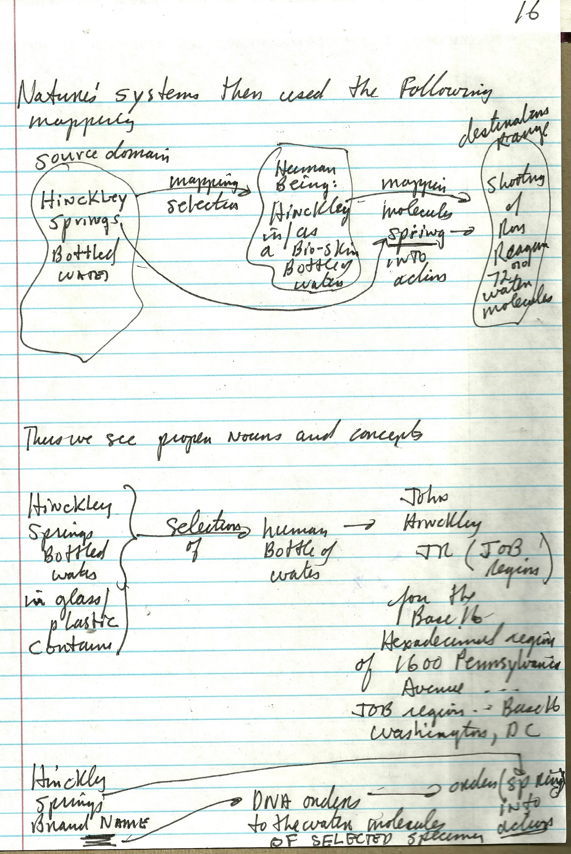 16
Nature's systems then used the Following
mapping
destination
Range
source domain
Hinckley
Springs
Bottled
water
mapping
selection
Human
Being:
Hinckley
in/as
a Bio-skin
Bottle of
water
mapping
molecules
spring
into
action
Shooting
of
Ron
Reagan
water
molecules
Thus we see proper nouns and concepts
Hinckley
Springs
Bottled
water
in glass/
plastic
containers
selection
of
human
Bottle of
water
John
Hinckley
JR (JOB
region)
for the
Base 16
Hexadecimal region
of 1600 Pennsylvania
Avenue ...
JOB region .. Base 16
Washington, DC
Hinckley
Springs
Brand NAME
DNA orders
to the water molecules
OF SELECTED SPECIMEN
orders (spring
into
action